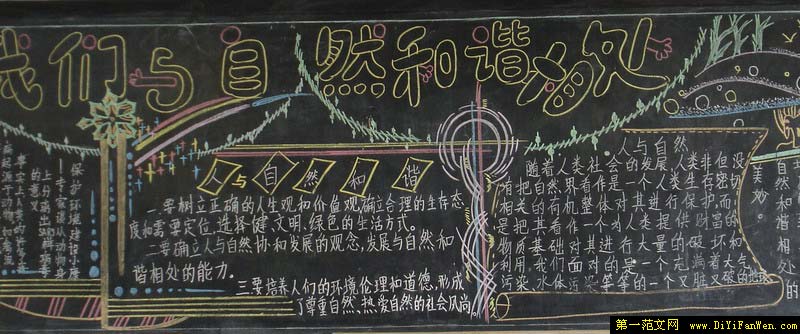 我们与自然和谐相处
保护环境建设小康
人与自然和谐
一.要树立正确的人生观和价值观,确立合理的生存态
度和需要定位,选择健、文明、绿色的生活方式。
二要确立人与自然协和发展的观念,发展与自然和
谐相处的能力.
三要培养人们的环境伦理和道德,形成
了尊重自然、热爱自然的社会风尚。
人与自然
随着人类社会的发展,人类非但没
有把自然界看作是一个人类生存密切
相关的有机整体对其进行保护,而
是把其看作一个为人类提供财富的
物质基础对其进行大量的破坏和
利用,我们面对的是一个充
污染,水体污染等等的一个又脏又破的地球
美妙。
自然和谐相处的
第一范文网 www.DiYiFanWen.com